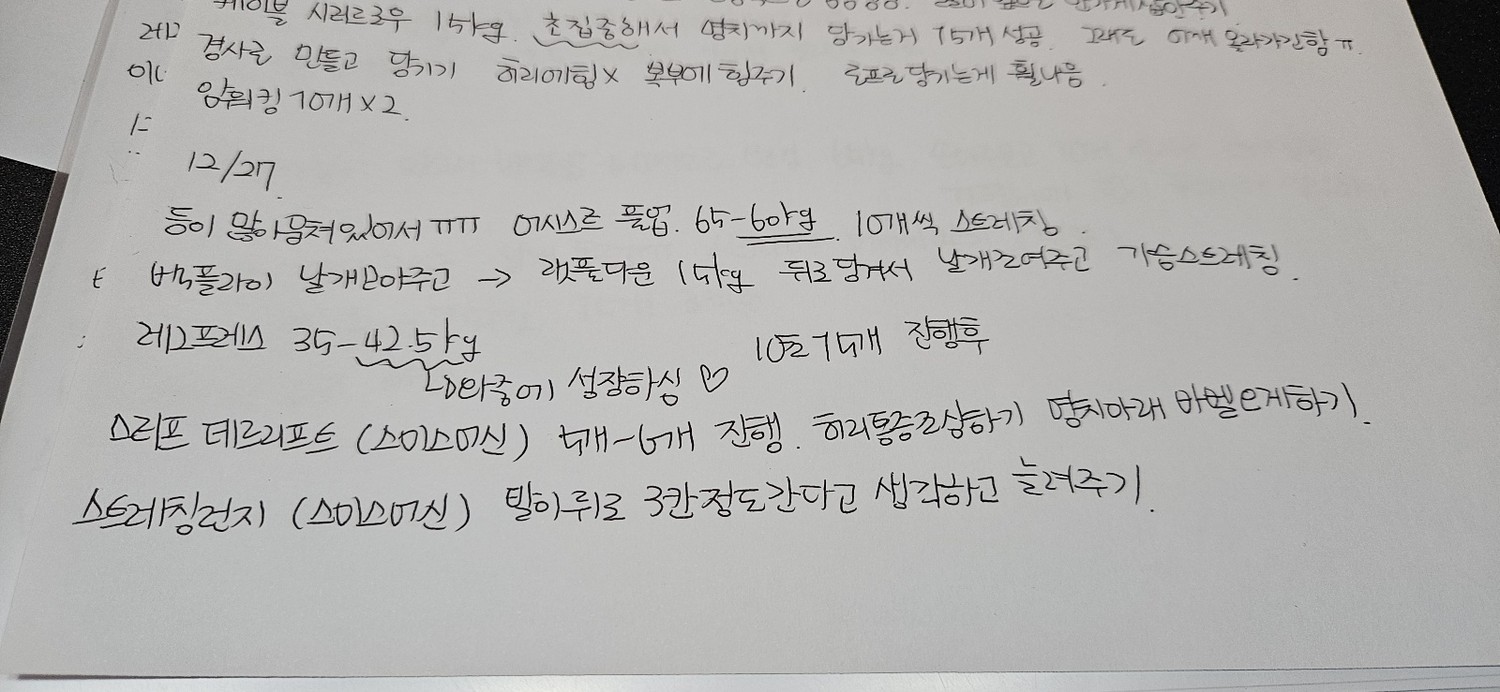 케이블 시러르로우 15kg. 초집중해서 명치까지 당기는거 15개 성공. 그래도 어깨 올라가긴함 ㅠ
레그
경사로 만들고 당기기 허리에힘 X 복부에 힘주기. 로프로 당기는게 훨나음.
이너
암워킹 10개 X 2.
12/27.
등이 많이 뭉쳐있어서 ㅠㅠ 어시스트 풀업. 65-60kg. 10개씩 스트레칭.
백플라이 날개모아주고 → 랫풀다운 15kg 뒤로당겨서 날개조여주고 가슴스트레칭.
레그프레스 35-42.5kg 10초 15개 진행후
나중에 성장하심 ♡
스티프 데드리프트 (스미스머신) 5개~6개 진행. 허리통증조심하기 명치아래 바벨오게하기.
스트레칭런지 (스미스머신) 발이 뒤로 3칸정도간다고 생각하고 눌려주기.